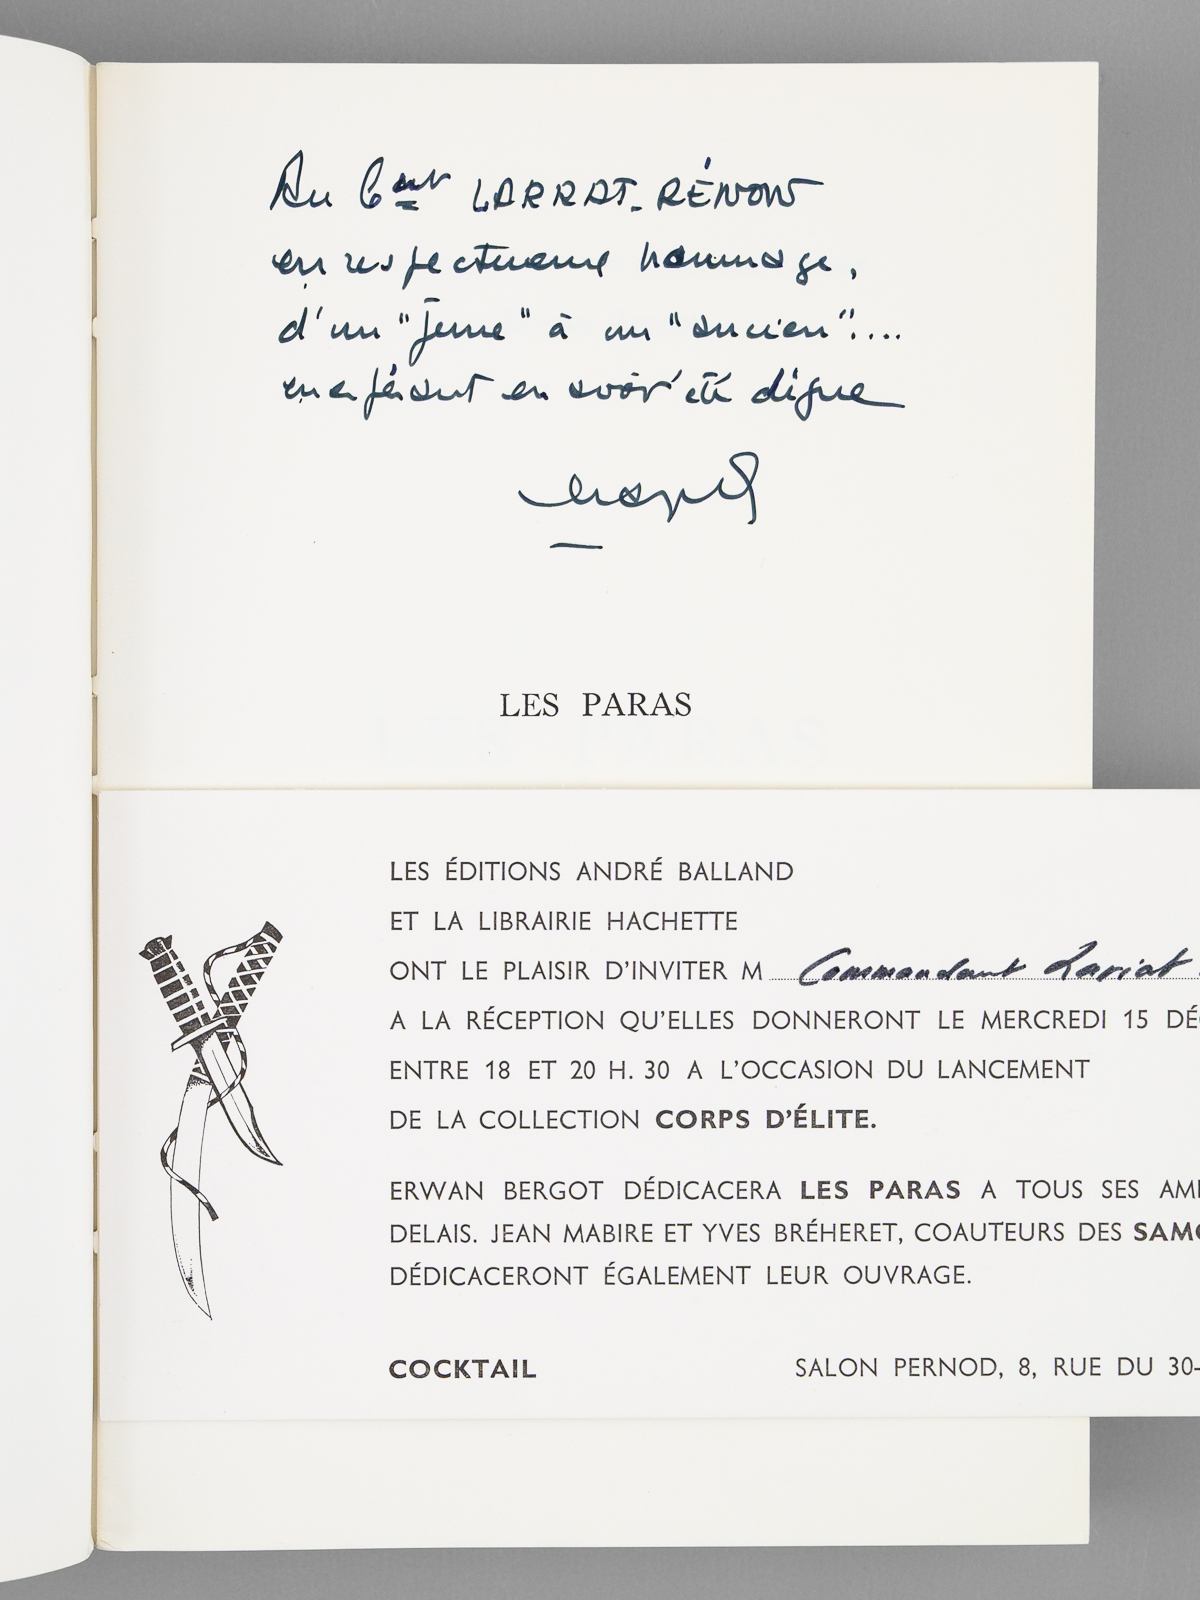 Au Cᵐᵗ LARRAT-RÉNON
en respectueux hommage,
d'un "Jeune" à un "ancien"....
en espérant en avoir été digne
LES PARAS
LES ÉDITIONS ANDRÉ BALLAND
ET LA LIBRAIRIE HACHETTE
ONT LE PLAISIR D'INVITER M Commandant Lariat
A LA RÉCEPTION QU'ELLES DONNERONT LE MERCREDI 15 DÉC
ENTRE 18 ET 20 H. 30 A L'OCCASION DU LANCEMENT
DE LA COLLECTION CORPS D'ÉLITE.
ERWAN BERGOT DÉDICACERA LES PARAS A TOUS SES AMI
DELAIS. JEAN MABIRE ET YVES BRÉHERET, COAUTEURS DES SAMO
DÉDICACERONT ÉGALEMENT LEUR OUVRAGE.
COCKTAIL SALON PERNOD, 8, RUE DU 30-